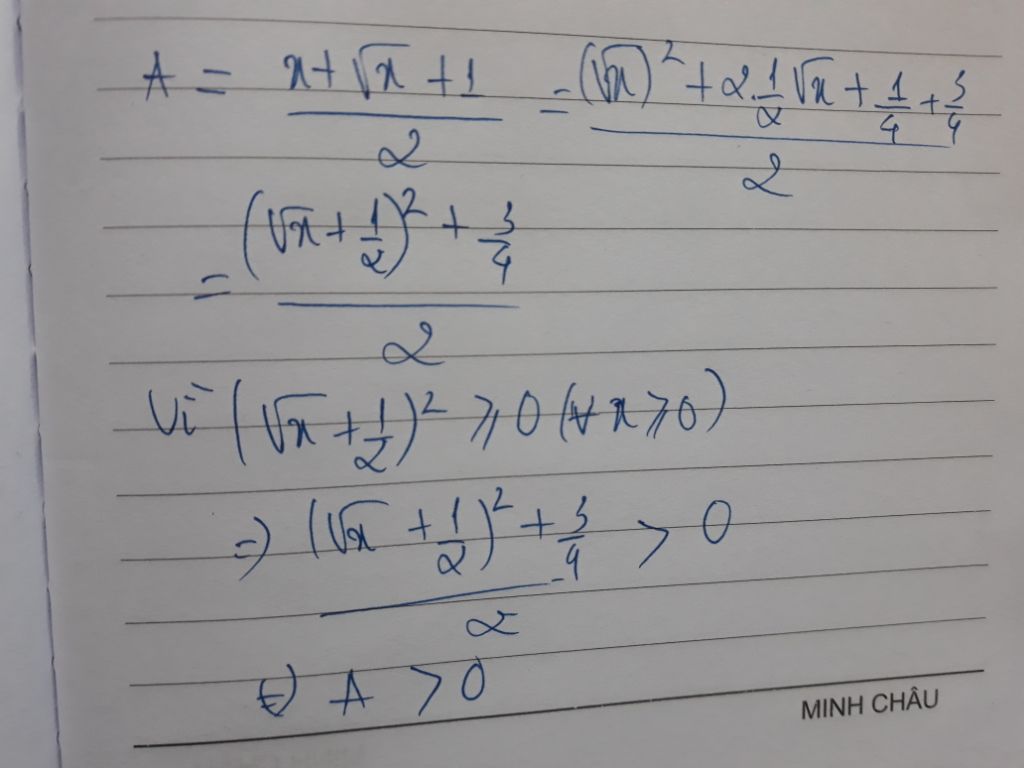 A = (x + √x + 1)/2 = ((√x)² + 2.1/2 √x + 1/4 + 3/4)/2
= ((√x + 1/2)² + 3/4)/2
Vì (√x + 1/2)² ⩾ 0 (∀x ⩾ 0)
=> ((√x + 1/2)² + 3/4)/2 > 0
(=) A > 0
MINH CHÂU